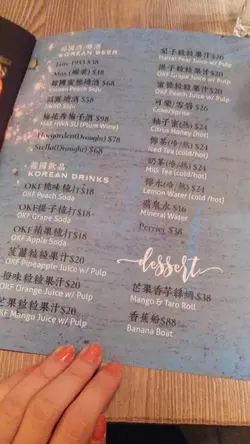 韓國酒/啤酒
KOREAN BEER
$68
Korean Peach Soju
$68
SWID Soju
$98
MAE HWA SU (Plum Wine)
Hoegaarden(Draught) $68
Stella(Draught) $68
韓國飲品
KOREAN DRINKS
OKF桃味梳打$18
OKF Peach Soda
OKF提子梳打$18
OKF Grape Soda
OKF蘋果梳打$18
OKF Apple Soda
菠蘿粒粒果汁$20
OKF Pineapple Juice w/ Pulp
橙味粒粒果汁$20
OKF Orange Juice w/ Pulp
芒果粒粒果汁$20
OKF Mango Juice w/ Pulp
梨子粒粒果汁$20
Pear Juice w/ Pulp
提子粒粒果汁$20
OKF Grape Juice w/ Pulp
蜜桃粒粒果汁$20
OKF Peach Juice w/ Pulp
可樂/雪碧 $20
Coke/Sprite
柚子蜜(熱) $24
Citrus Honey (hot)
檸茶(熱/凍) $24
Iced Tea (cold/hot)
奶茶(熱/凍) $24
Milk Tea (cold/hot)
檸水(熱/凍) $24
Lemon Water (cold/hot)
礦泉水 $16
Mineral Water
Perrier $38
dessert
芒果香芋絲綢 $38
Mango & Taro Roll
香蕉船$88
Banana Boat